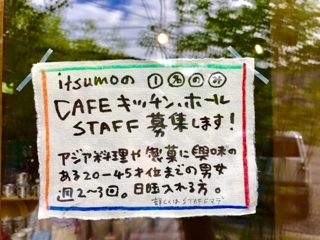 itsumoの 1名のみ
CAFEキッチン、ホール
STAFF 募集します!
アジア料理や製菓に興味の
ある20-45才位までの男女
週2~3回。日時入れる方。
詳しくはSTAFFまで